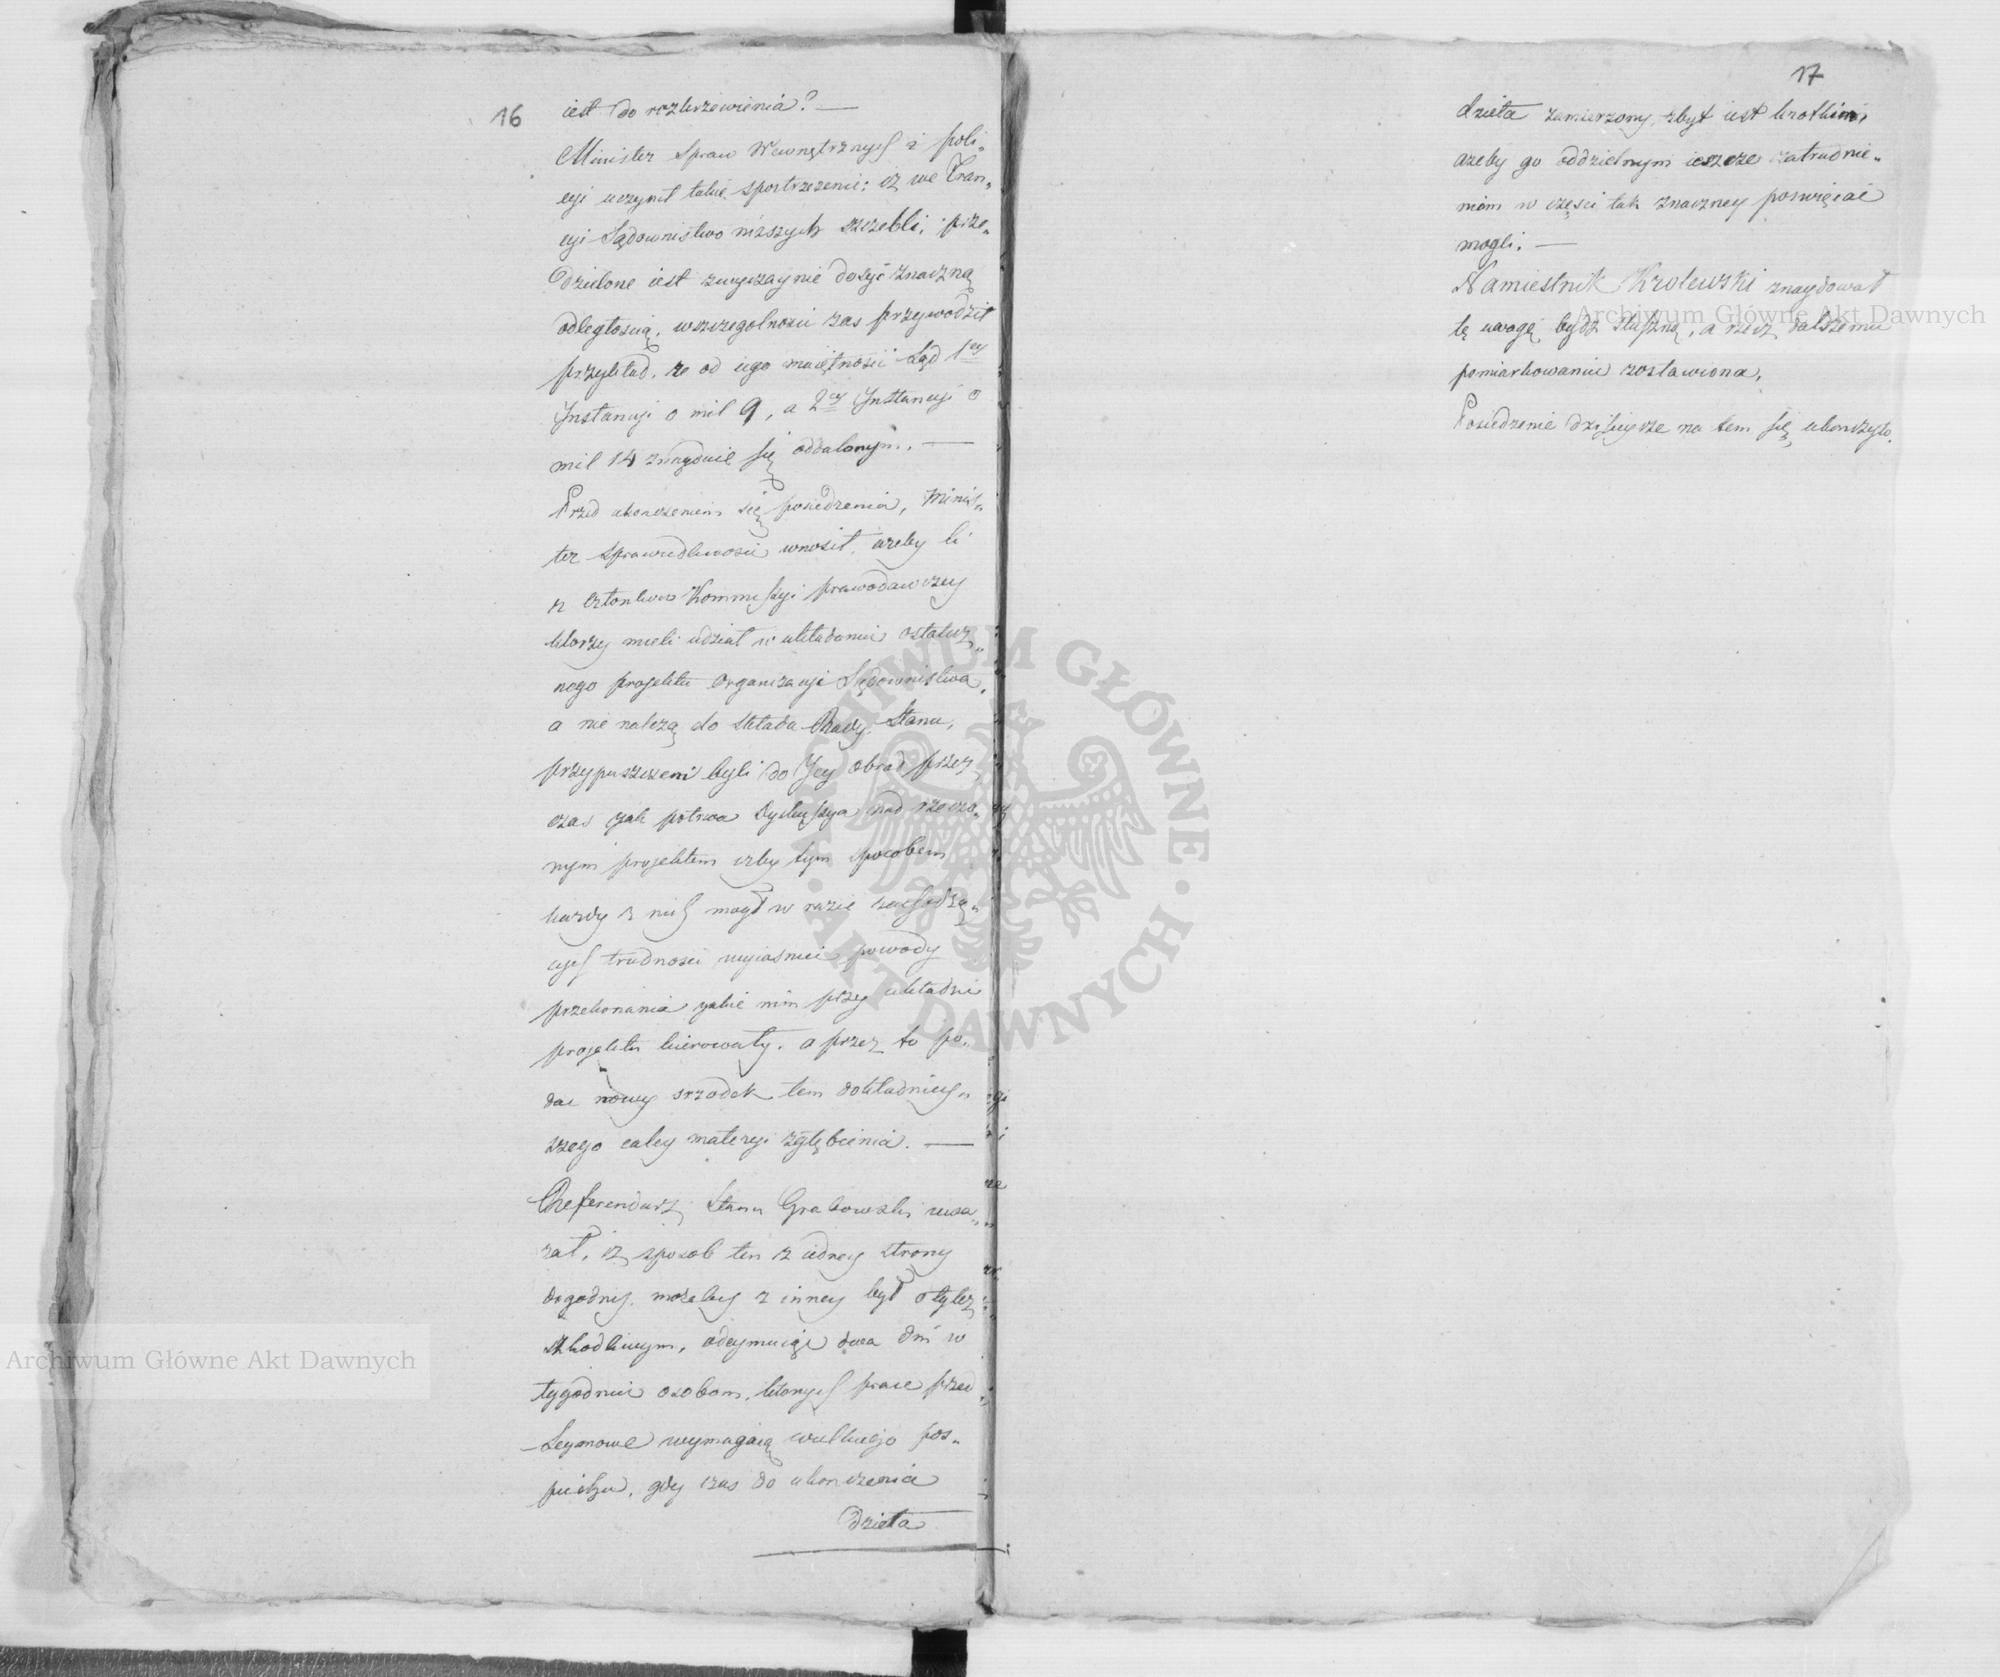 16
iest do rozkrzewienia? —
Minister Spraw Wewnętrznych i Poli„
cyi uczynił takie spostrzezenie; iz we Fran„
cyi Sądownictwo niższych szczebli, prze„
dzielone iest zwyczaynie dosyć znaczną
odległoscią, wszczegolnosci zas przywodził
przykład, ze od iego maiętnosci Sąd 1ey
Instancyi o mil 9, a 2ey Instancyi o
mil 14 znayduie się oddalonym. —
Przed ukonczeniem się posiedzenia, Minis„
ter Sprawiedliwosci wnosił, azeby ci
z Członkow Kommissyi prawodawczey
ktorzy mieli udział w układaniu ostatecz„
nego projektu Organizacyi Sądownictwa,
a nie nalezą do składu Rady Stanu,
przypuszczeni byli do Jey obrad przez
czas jak potrwa dyskussya nad rzeczo„
nym projektem izby tym sposobem
kazdy z nich mogł w razie zachodzą„
cych trudnosci wyiasnic powody
przekonania jakie nim przy układzie
projektu kierowały, a przez to po„
dac nowy srzodek tem dokładniey„
szego całey materyi zgłębienia. —
Referendarz Stanu Grabowski uwa„
zał, iz sposob ten z iedney strony
dogodny, mozeby z inney był o tylez
szkodliwym, odeymuiąc dwa dni w
tygodniu osobom, ktorych prace przed
Seymowe wymagaią wielkiego pos„
piechu, gdy czas do ukonczenia
dzieła
17
dzieła zamierzony, zbyt iest krotkim,
azeby go oddzielnym ieszcze zatrudnie„
niom w częsci tak znaczney poswięcać
mogli. —
Namiestnik Krolewski znaydował
tę uwagę bydz słuszną, a rzecz dalszemu
pomiarkowaniu zostawiona.
Posiedzenie dzisieysze na tem się ukonczyło.
Archiwum Główne Akt Dawnych
Archiwum Główne Akt Dawnych
ARCHIWUM GŁÓWNE · AKT DAWNYCH ·